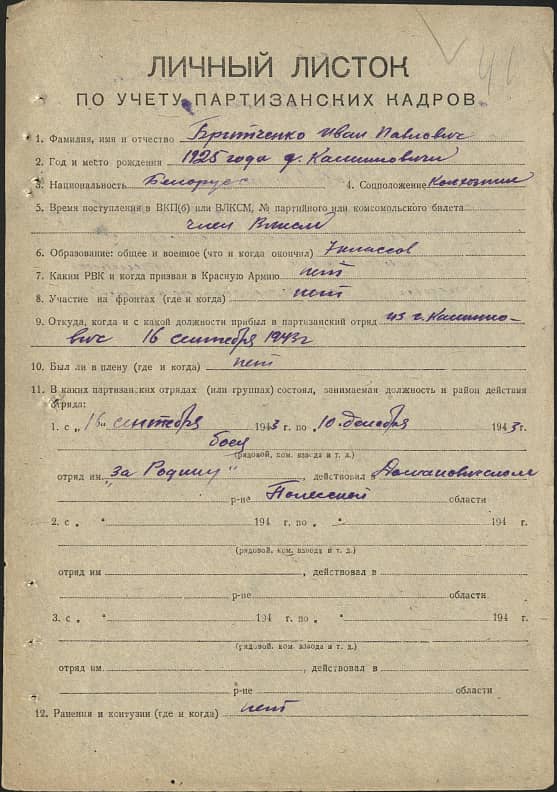 41
ЛИЧНЫЙ ЛИСТОК
ПО УЧЕТУ ПАРТИЗАНСКИХ КАДРОВ
1. Фамилия, имя и отчество Бритченко Иван Павлович
2. Год и место рождения 1925 года г. Калинковичи
3. Национальность Белорус 4. Соцположение Колхозник
5. Время поступления в ВКП(б) или ВЛКСМ, № партийного или комсомольского билета
член Влксм
6. Образование: общее и военное (что и когда окончил) 7 классов
7. Каким РВК и когда призван в Красную Армию нет
8. Участие на фронтах (где и когда) нет
9. Откуда, когда и с какой должности прибыл в партизанский отряд из г. Калинко-
вич 16 сентября 1943 г
10. Был ли в плену (где и когда) нет
11. В каких партизанских отрядах (или группах) состоял, занимаемая должность и район действия
отряда:
1. с „16" сентября 1943 г. по 10 декабря 1943 г.
боец
(рядовой, ком. взвода и т. д.)
отряд им „За Родину", действовал в Домановическом
р-не Полесской области
2. с „ " 194 г. по „ " 194 г.
(рядовой, ком. взвода и т. д.)
отряд им , действовал в
р-не области
3. с „ " 194 г. по „ " 194 г.
(рядовой, ком. взвода и т. д.)
отряд им , действовал в
р-не области
12. Ранения и контузии (где и когда) нет